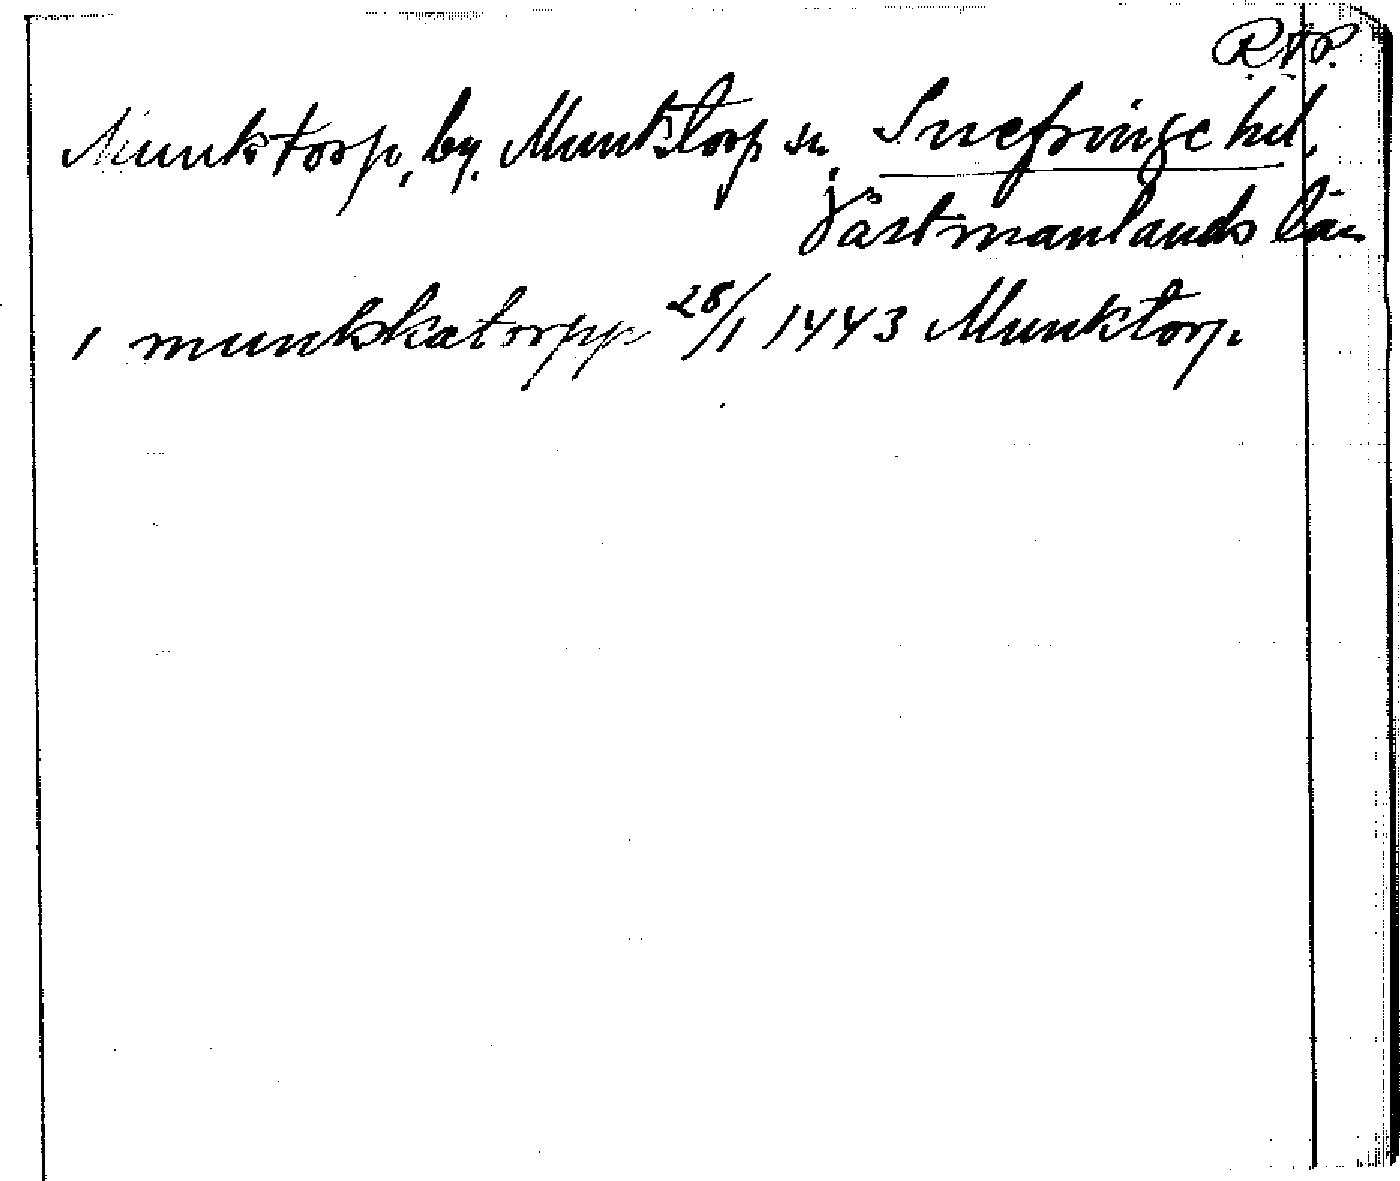 R.A.P.
Munktorp, by, Munktorp sn, Snefringe hd,
Västmanlands län
i munkkatorpp 28/1 1443 Munktorp.